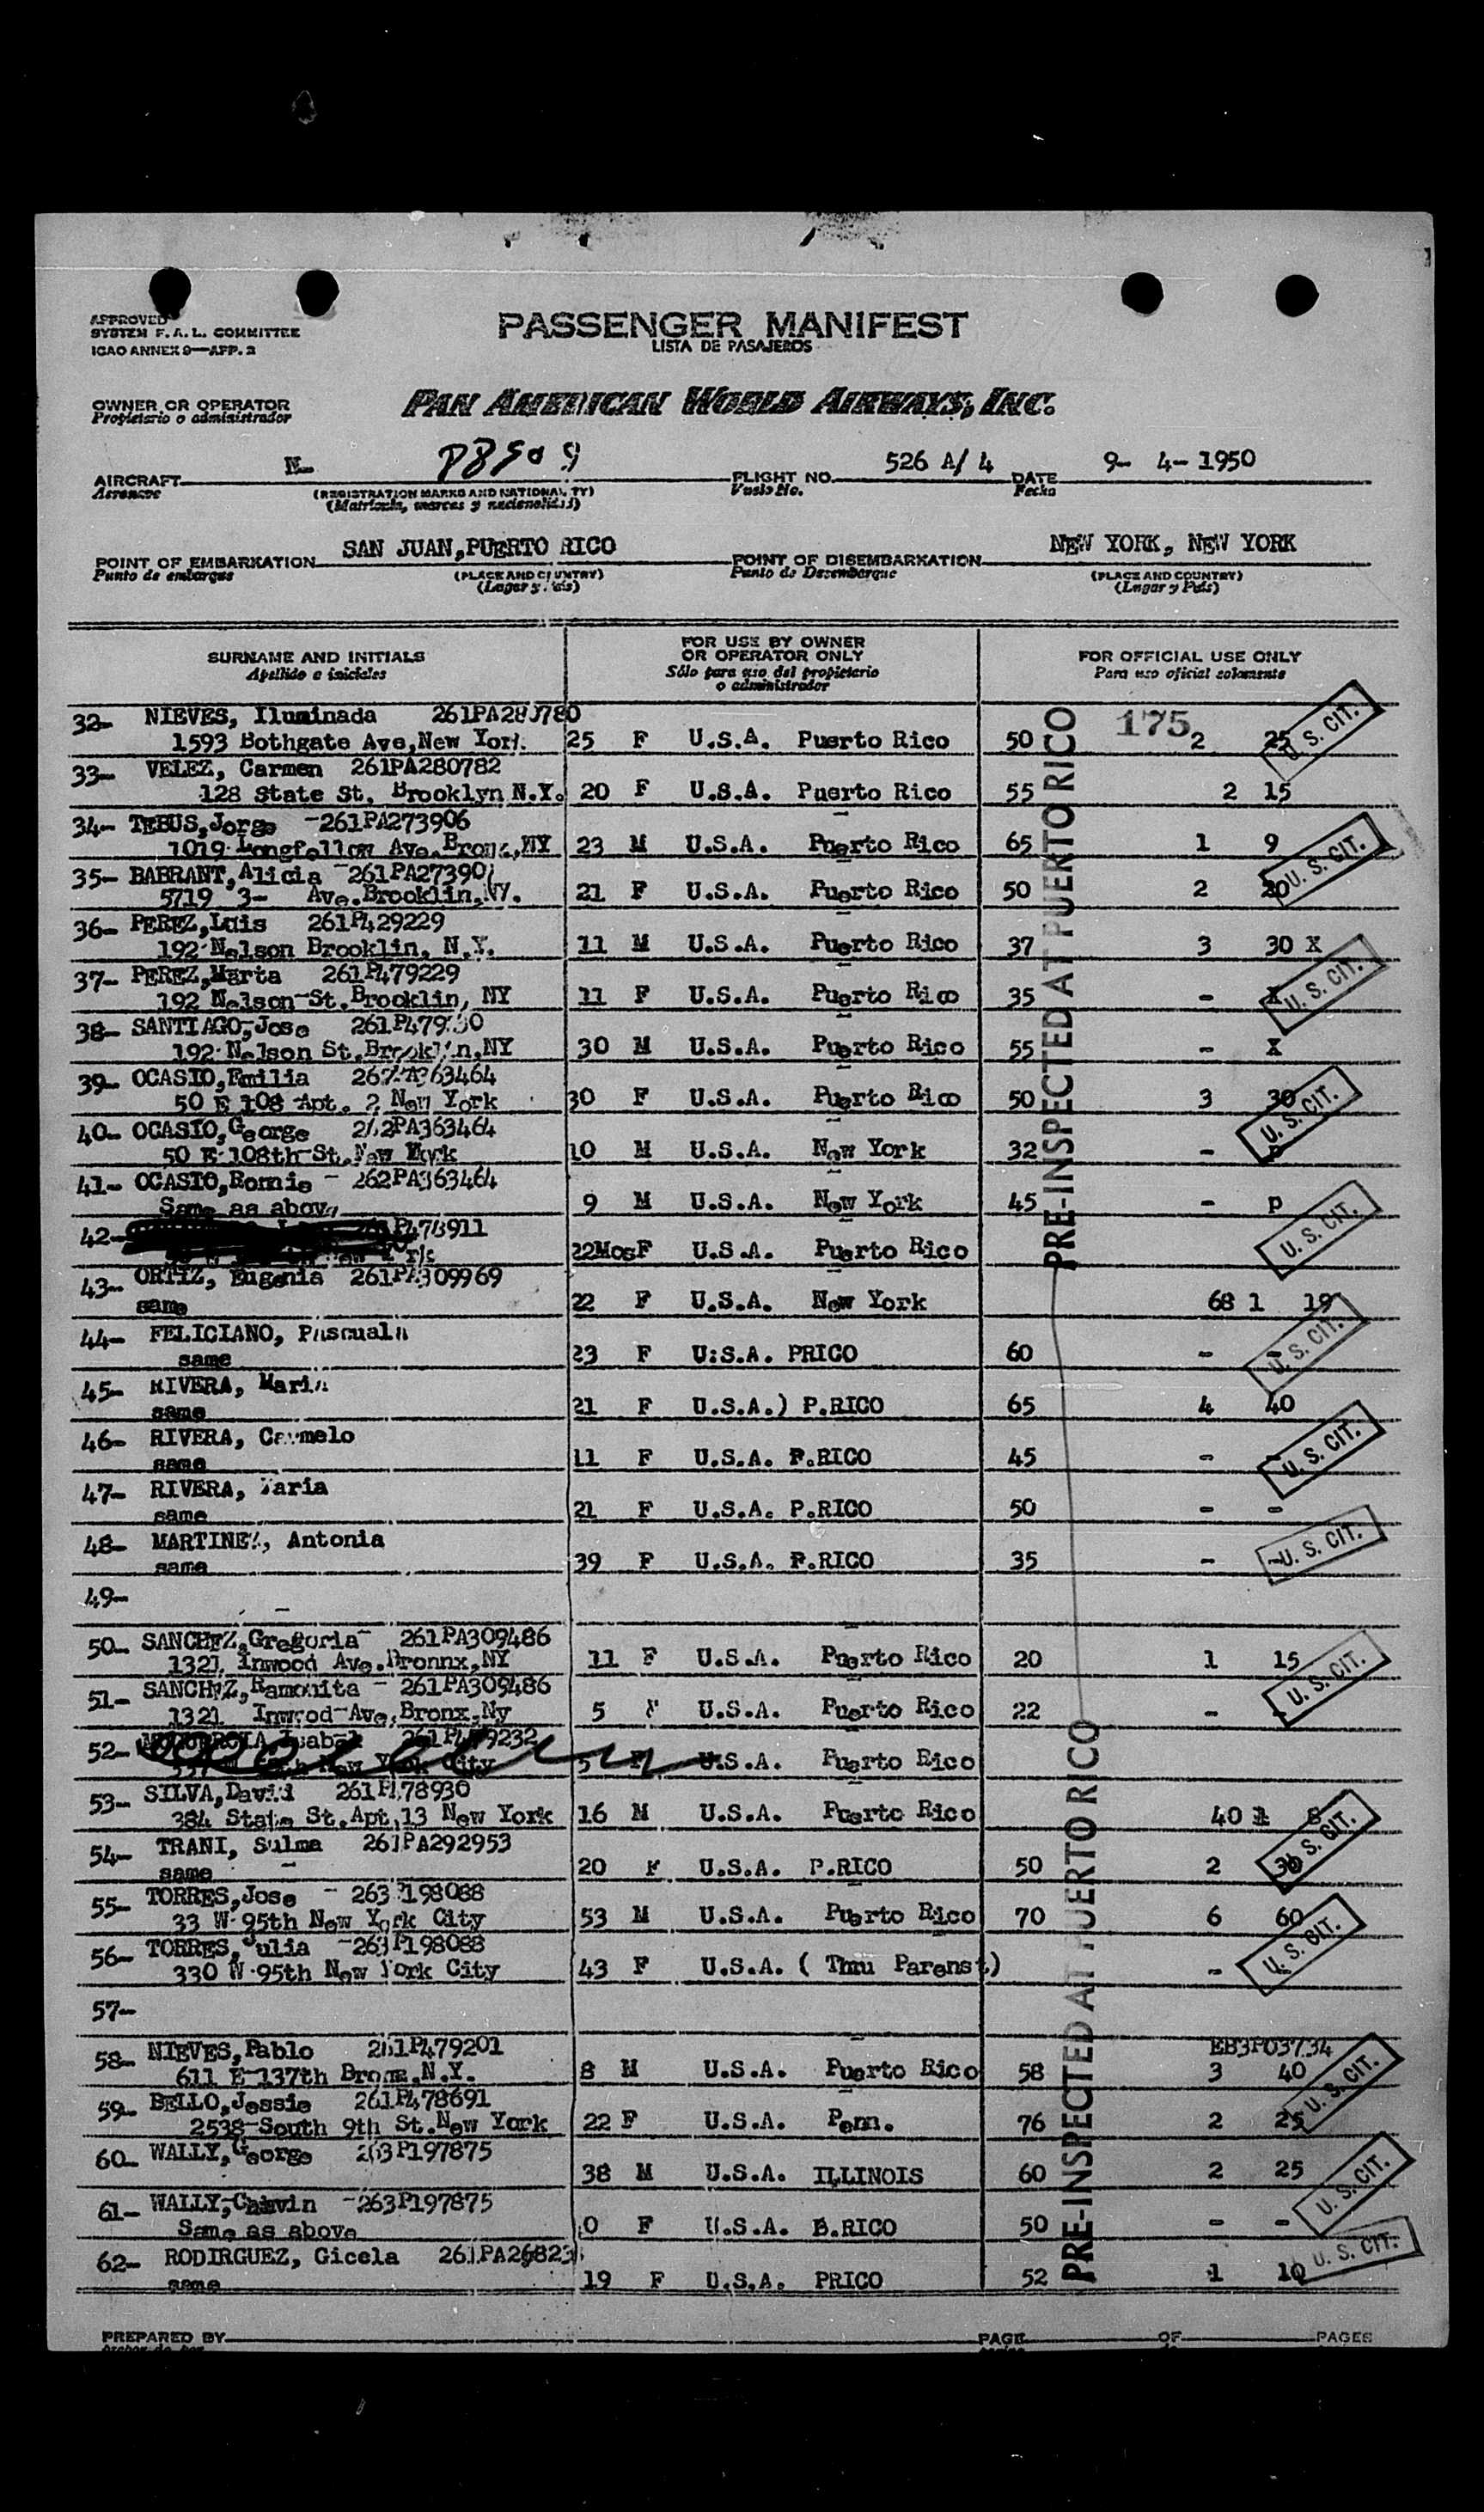 APPROVED
SYSTEM F. A. L. COMMITTEE
ICAO ANNEX 9—APP. 2
PASSENGER MANIFEST
LISTA DE PASAJEROS
OWNER OR OPERATOR
Propietario o administrador
PAN AMERICAN WORLD AIRWAYS, INC.
AIRCRAFT N- FLIGHT NO. 526 A/4 DATE 9- 4- 1950
Aeronave (REGISTRATION MARKS AND NATIONALITY) Vuelo No. Fecha
(Matrícula, marcas y nacionalidad)
POINT OF EMBARKATION SAN JUAN, PUERTO RICO POINT OF DISEMBARKATION NEW YORK, NEW YORK
Punto de embarque (PLACE AND COUNTRY) Punto de Desembarque (PLACE AND COUNTRY)
(Lugar y País) (Lugar y País)
SURNAME AND INITIALS FOR USE BY OWNER OR OPERATOR ONLY FOR OFFICIAL USE ONLY
Apellido e iniciales Sólo para uso del propietario o administrador Para uso oficial solamente
PRE-INSPECTED AT PUERTO RICO
175
32- NIEVES, Iluminada
1593 Bothgate Ave, New York 25 F U.S.A. Puerto Rico 50 2 25 U. S. CIT.
33- VELEZ, Carmen 261PA280782
128 State St, Brooklyn N.Y. 20 F U.S.A. Puerto Rico 55 2 15
34- TEBUS, Jorge -261PA273906
1019 Longfellow Ave. Bronx, NY 23 M U.S.A. Puerto Rico 65 1 9 U. S. CIT.
35- BABRANT, Alicia
5719 3- Ave. Brooklin, NY. 21 F U.S.A. Puerto Rico 50 2 20
36- PEREZ, Luis 261P429229
192 Nelson Brooklin, N.Y. 11 M U.S.A. Puerto Rico 37 3 30 X
37- PEREZ, Marta 261P479229
192 Nelson St. Brooklin, NY 11 F U.S.A. Puerto Rico 35 - X U. S. CIT.
38- SANTIAGO, Jose
192 Nelson St. Brooklin, NY 30 M U.S.A. Puerto Rico 55 - X
39- OCASIO, Emilia
50 E 108 Apt. 2 New York 30 F U.S.A. Puerto Rico 50 3 30 U. S. CIT.
40- OCASIO, George 262PA363464
50 E 108th St. New 10 M U.S.A. New York 32 -
41- OCASIO, Romie - 262PA363464
Same as above 9 M U.S.A. New York 45 - p U. S. CIT.
42-
22Mos F U.S.A. Puerto Rico
43- ORTIZ, Eugenia 261PA309969
same 22 F U.S.A. New York 68 1 19
44- FELICIANO, Pascuala
same 23 F U:S.A. PRICO 60 - - U. S. CIT.
45- RIVERA, Maria
same 21 F U.S.A.) P.RICO 65 4 40
46- RIVERA, Carmelo
same 11 F U.S.A. P.RICO 45 - - U. S. CIT.
47- RIVERA, Maria
same 21 F U.S.A. P.RICO 50 - -
48- MARTINEZ, Antonia
same 39 F U.S.A. P.RICO 35 - - U. S. CIT.
49-
50- SANCHEZ, Gregoria 261PA309486
1321 Inwood Ave. Bronnx, NY 11 F U.S.A. Puerto Rico 20 1 15
51- SANCHEZ, Ramonita - 261PA309486
1321 Inwood Ave, Bronx, Ny 5 F U.S.A. Puerto Rico 22 - - U. S. CIT.
52-
New York City 5 U.S.A. Puerto Rico
PRE-INSPECTED AT PUERTO RICO
53- SILVA, David
384 State St. Apt, 13 New York 16 M U.S.A. Puerto Rico 40 1 8
54- TRANI, Sulma 261PA292953
same 20 F U.S.A. P.RICO 50 2 30 U. S. CIT.
55- TORRES, Jose - 263P198088
33 W 95th New York City 53 M U.S.A. Puerto Rico 70 6 60
56- TORRES, Julia -263P198088
330 W 95th New York City 43 F U.S.A. ( Thru Parenst) - U. S. CIT.
57-
58- NIEVES, Pablo 261P479201 EB3P03734
611 E 137th Bronx, N.Y. 8 M U.S.A. Puerto Rico 58 3 40
59- BELLO, Jessie 261P478691
2538 South 9th St. New York 22 F U.S.A. Penn. 76 2 25 U. S. CIT.
60- WALLY, George 263P197875
38 M U.S.A. ILLINOIS 60 2 25
61- WALLY, -263P197875
Same as above F U.S.A. P.RICO 50 - - U. S. CIT.
62- RODIRGUEZ, Gicela
same 19 F U.S.A. PRICO 52 1 10 U. S. CIT.
PREPARED BY PAGE OF PAGES